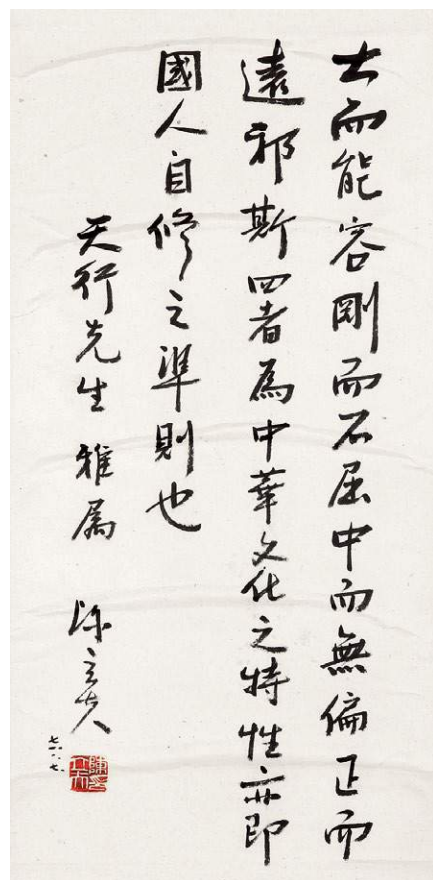 大而能容剛而不屈中而無偏正而
遠邪斯四者為中華文化之特性亦即
國人自修之準則也
天行先生 雅属 陳立夫